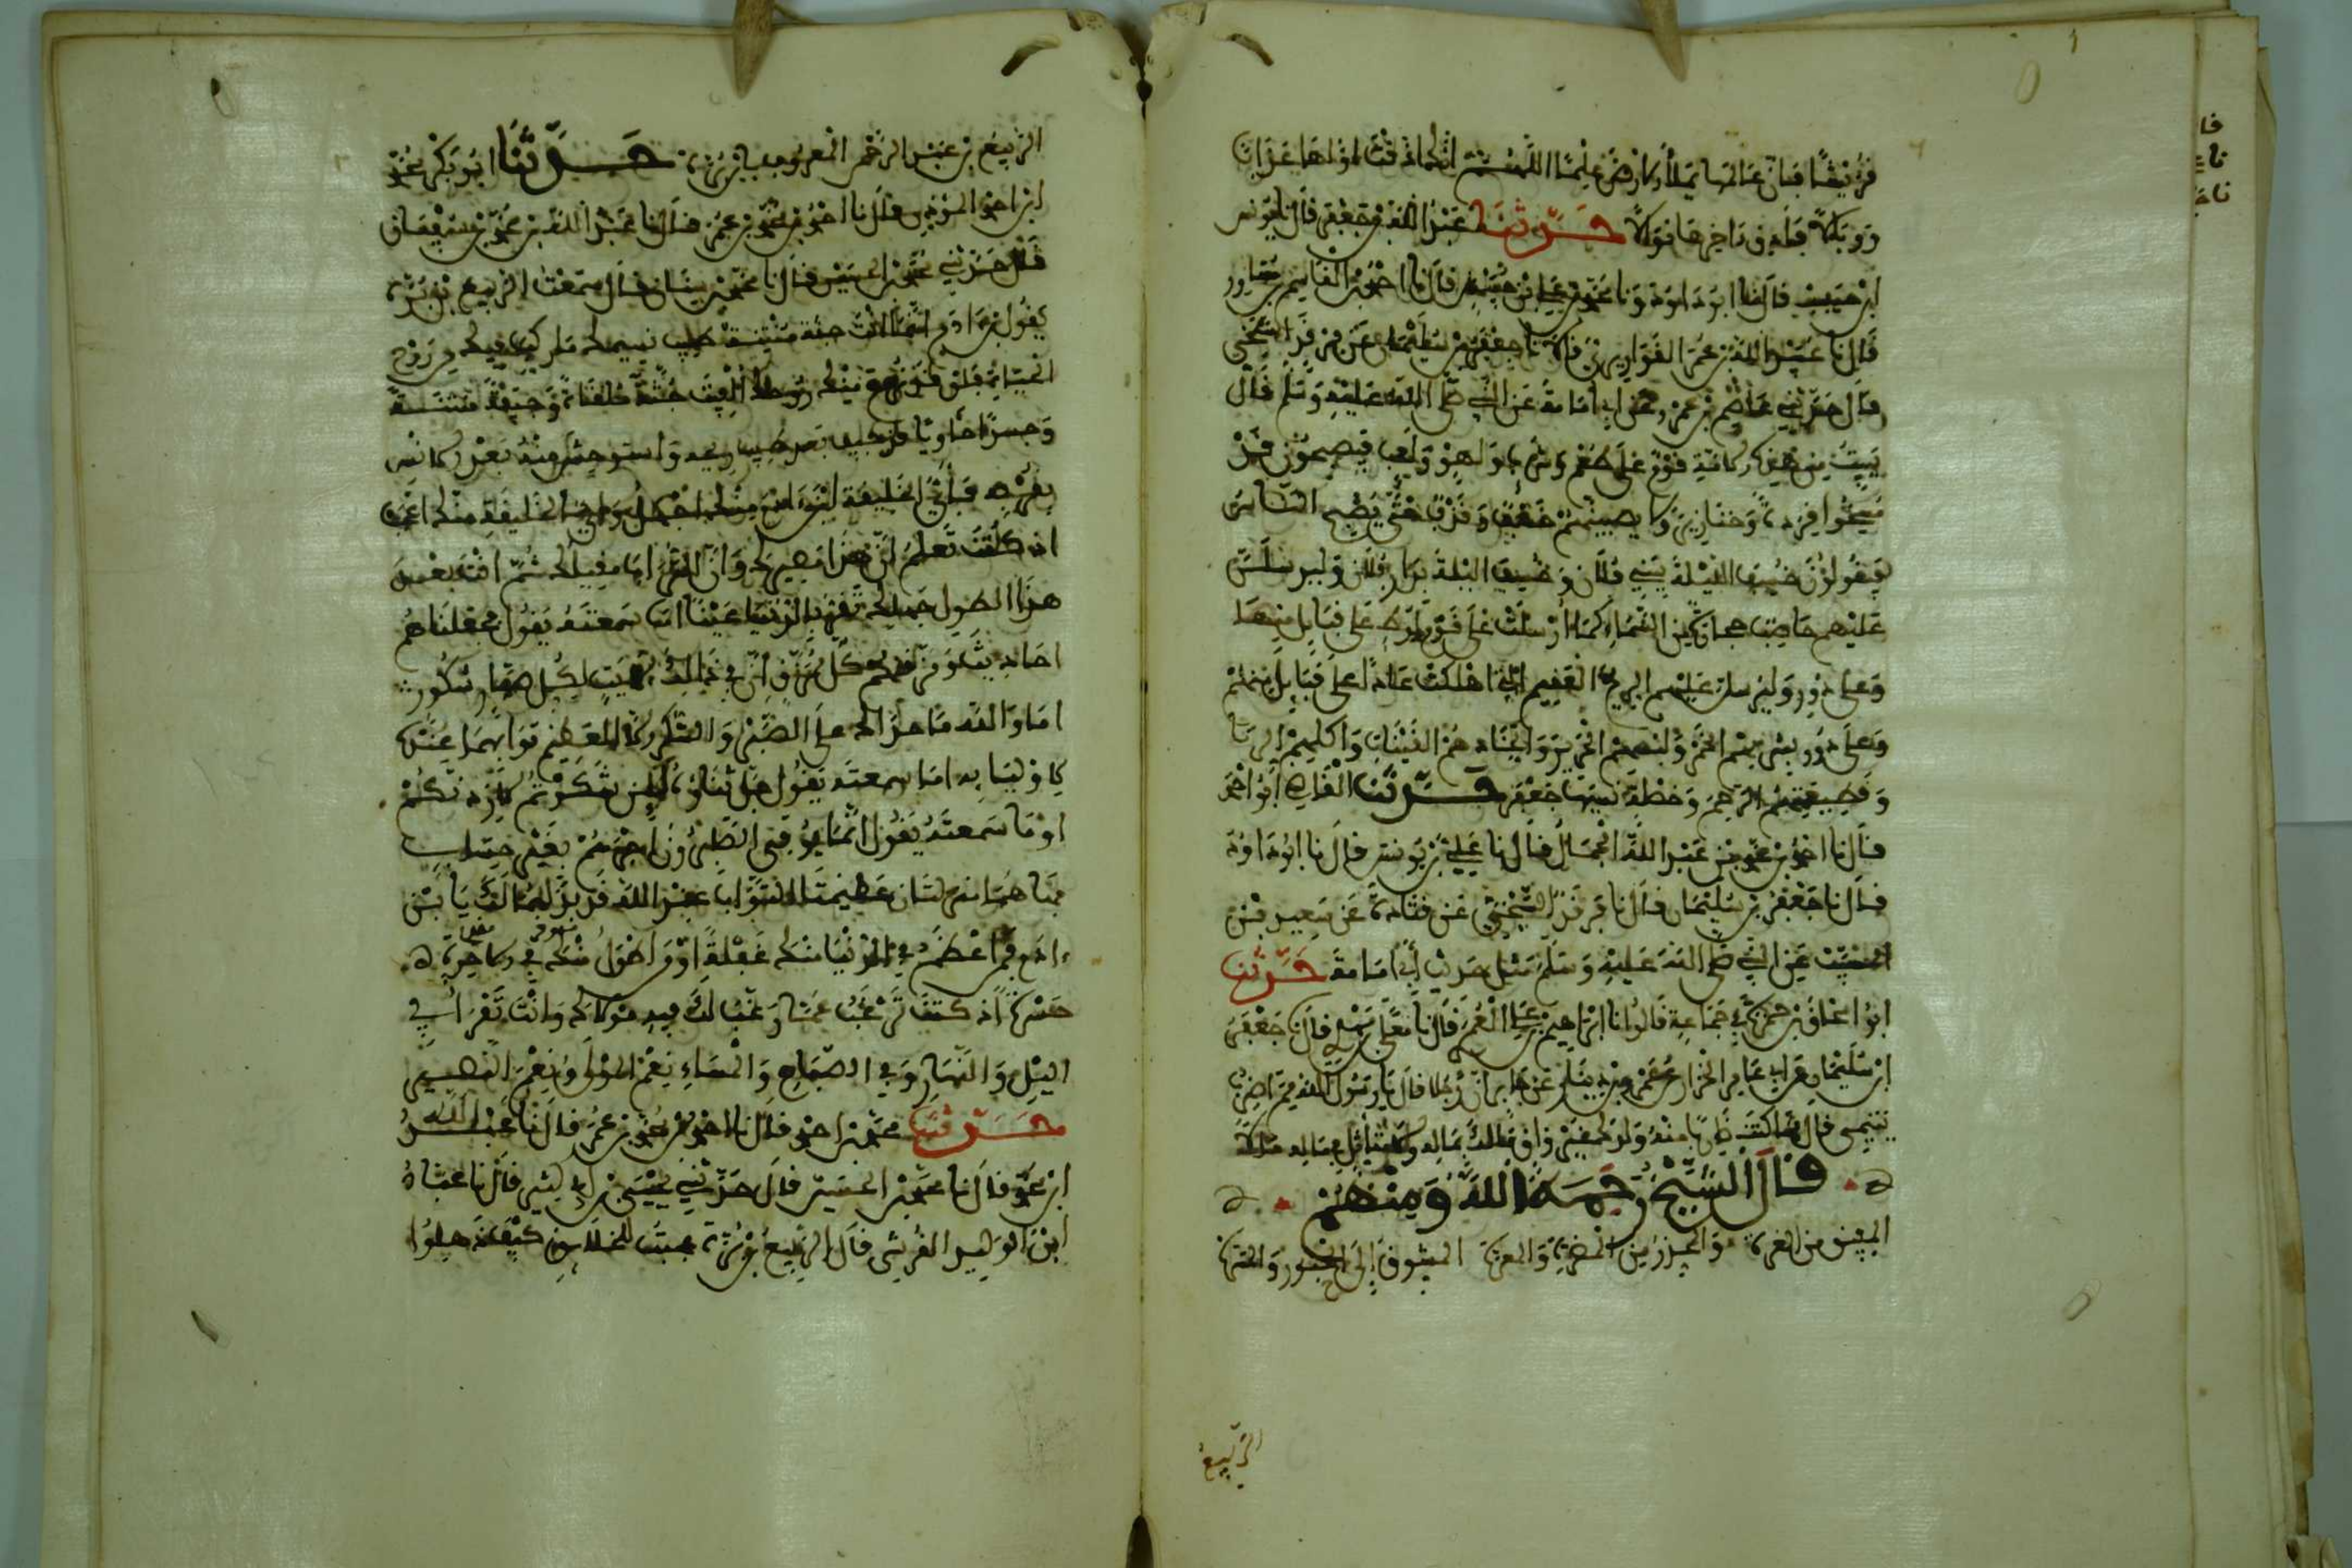 قريشا فإن عالمها يملأ الأرض علما اللهم أذقت أولها عذابا
ووبالا فأذق آخرها نوالا حدثنا عبد الله بن جعفر قال نا يونس
ابن حبيب قال نا أبو داود ونا محمد بن علي بن حبيش قال نا أحمد بن القاسم بن مساور
قال نا عبيد الله بن عمر القواريري قال نا جعفر بن سليمان عن فرقد السبخي
قال حدثني عاصم بن عمرو عن أبي أمامة عن النبي صلى الله عليه وسلم قال
يبيت من هذه الأمة قوم على طعم وشرب ولهو ولعب فيصبحون قد
مسخوا قردة وخنازير وليصيبنهم خسف وقذف حتى يصبح الناس
فيقولون خسف الليلة ببني فلان وخسف الليلة بدار فلان وليرسلن
عليهم حاصب حجارة من السماء كما أرسلت على قوم لوط على قبائل منها
وعلى دور وليرسلن عليهم الريح العقيم التي أهلكت عادا على قبائل منهم
وعلى دور بشربهم الخمر ولبسهم الحرير واتخاذهم القينات وأكلهم الربا
وقطيعتهم الرحم وخصلة نسيها جعفر حدثنا القاضي أبو أحمد
قال نا أحمد بن محمد بن عبد الله الجمال قال نا علي بن يونس قال نا أبو داود
قال نا جعفر بن سليمان قال نا فرقد السبخي عن قتادة عن سعيد بن
المسيب عن النبي صلى الله عليه وسلم مثل حديث أبي أمامة حدثنا
أبو إسحاق بن حمزة في جماعة قالوا نا إبراهيم بن علي العمري قال نا معلى بن مهدي قال نا جعفر
ابن سليمان عن أبي عامر الخزاز عن عمرو بن دينار عن جابر أن رجلا قال يا رسول الله مم أضرب
يتيمي قال مما كنت ضاربا منه ولدك غير واق مالك بماله ولا متأثل من ماله مالا
قال الشيخ رحمه الله ومنهم
المفيق من الغمرة والحذر من المضرة والمعرة المشوق إلى الحبور والمسرة
الربيع
الربيع بن عبد الرحمن المعروف بابن برة حدثنا أبو بكر محمد
ابن أحمد المؤذن قال نا أحمد بن محمد بن عمر قال نا عبد الله بن محمد بن سفيان
قال حدثني محمد بن الحسين قال نا محمد بن سنان قال سمعت الربيع بن برة
يقول ابن آدم إنما أنت جثة منتنة طيب نسيمك ما ركب فيك من روح
الحياة فلو قد نزع منك روحك ألقيت جثة ملقاة وجيفة منتنة
وجسدا خاويا قد جيف بعد طيب ريحه واستوحش منه بعد الأنس
بقربه فأي الخليقة ابن آدم منك أجهل وأي الخليقة منك أعجب
إذ كنت تعلم أن هذا مصيرك وأن التراب مقيلك ثم أنت بعد
هذا لطول جهلك تقر بالدنيا عينا أما سمعته يقول فجعلناهم
أحاديث ومزقناهم كل ممزق إن في ذلك لآيات لكل صبار شكور
أما والله ما حداك على الصبر والشكر إلا لعظيم ثوابهما عنده
لأوليائه أما سمعته يقول جل ثناؤه لئن شكرتم لأزيدنكم
أو ما سمعته يقول إنما يوفى الصابرون أجرهم بغير حساب
فها هما منزلتان عظيمتا الثواب عند الله قد بذلهما لك يا ابن
آدم فمن أعظم في الدنيا منك غفلة أو من أطول منك في الآخرة
حسرة إذ كنت ترغب عما رغب لك فيه مولاك وأنت تقرأ في
الليل والنهار وفي الصباح والمساء نعم المولى ونعم النصير
حدثنا محمد بن أحمد قال نا أحمد بن محمد بن عمر قال نا عبد الله
ابن محمد قال نا محمد بن الحسين قال حدثني يحيى بن أبي كثير قال نا عباد
ابن الوليد القرشي قال الربيع بن برة عجبت للخلائق كيف ذهلوا